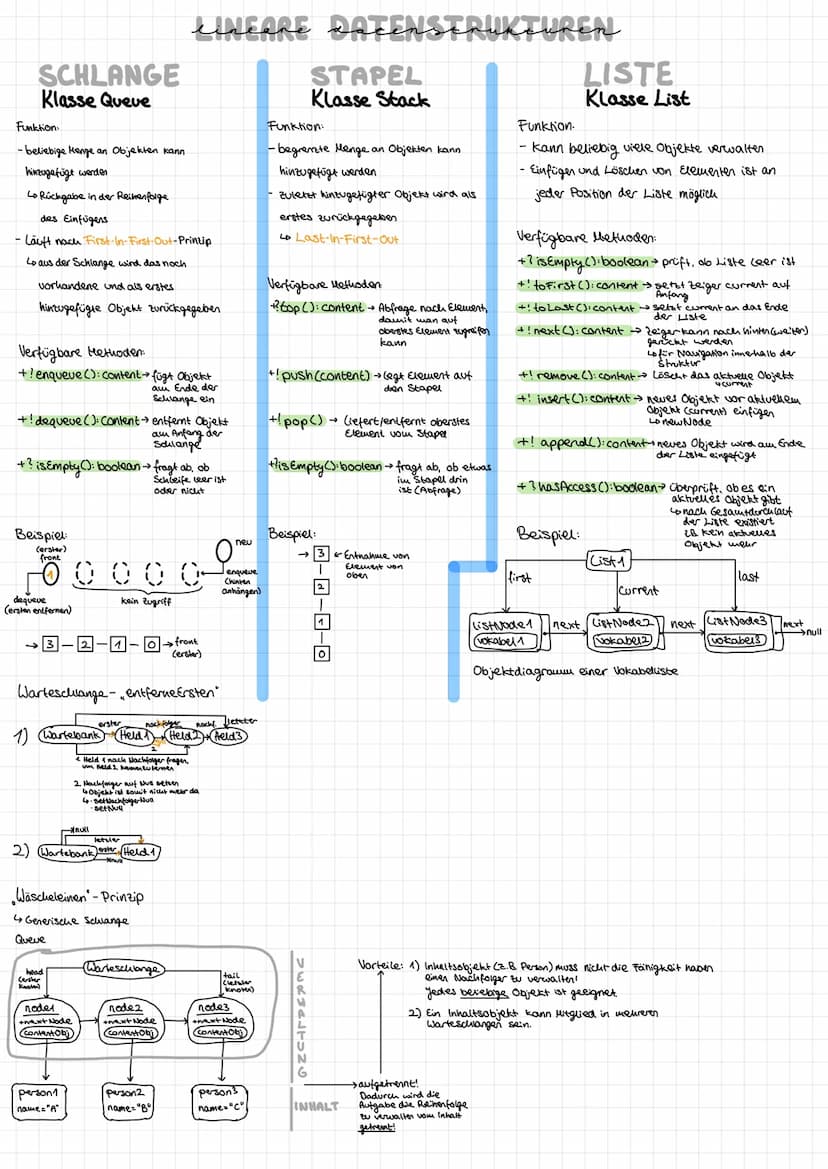 LINEARE DATENSTRUKTUREN
SCHLANGE
Klasse Queue
Funktion:
- beliebige Menge an Objekten kann
hinzugefügt werden
↳ Rückgabe in der Reihenfolge
des Einfügens
- Läuft nach First-In-First-Out-Prinzip
↳ aus der Schlange wird das noch
vorhandene und als erstes
hinzugefügte Objekt zurückgegeben
Verfügbare Methoden:
+! enqueue(): content → fügt Objekt
am Ende der
Schlange ein
+! dequeue(): content → entfernt Objekt
am Anfang der
Schlange
+? isEmpty(): boolean → fragt ab, ob
Schleife leer ist
oder nicht
Beispiel:
(erster)
front
1
neu
dequeue
(ersten entfernen)
kein Zugriff
enqueue
(hinten
anhängen)
→ 3 - 2 - 1 - 0 → front
(erster)
Warteschlange - „entferneErsten"
1) Wartebank erster Held1 nachfolger Held2 nachf. Held3 letzter
2
1. Held 1 nach Nachfolger fragen,
um Held 2 kennenzulernen
2. Nachfolger auf Null setzen
↳ Objekt ist somit nicht mehr da
↳ - setNachfolgerNull
- setNull
2) Wartebank Held1
null
letzter
erster
„Wäscheleinen"-Prinzip
↳ Generische Schlange
Queue
Warteschlange
head
(erster
Knoten)
tail
(letzter
Knoten)
node1
+nextNode
contentObj
node2
+nextNode
contentObj
node3
+nextNode
contentObj
person1
name="A"
person2
name="B"
person3
name="C"
STAPEL
Klasse Stack
Funktion:
- begrenzte Menge an Objekten kann
hinzugefügt werden
- zuletzt hinzugefügter Objekt wird als
erstes zurückgegeben
↳ Last-In-First-Out
Verfügbare Methoden
+? top(): content → Abfrage nach Element,
damit man auf
oberstes Element zugreifen
kann
+! push(content) → legt Element auf
den Stapel
+! pop() → liefert/entfernt oberstes
Element vom Stapel
+? isEmpty(): boolean → fragt ab, ob etwas
im Stapel drin
ist (Abfrage)
Beispiel:
→ 3 ← Entnahme von
Element von
oben
2
1
0
LISTE
Klasse List
Funktion.
- kann beliebig viele Objekte verwalten
- Einfügen und Löschen von Elementen ist an
jeder Position der Liste möglich
Verfügbare Methoden:
+? isEmpty(): boolean → prüft, ob Liste leer ist
+! toFirst(): content → setzt Zeiger current auf
Anfang
+! toLast(): content → setzt current an das Ende
der Liste
+! next(): content → Zeiger kann nach hinten (weiter)
gerückt werden
↳ für Navigation innerhalb der
Struktur
+! remove(): content → Löscht das aktuelle Objekt
↳ current
+! insert(): content → neues Objekt vor aktuellem
Objekt (current) einfügen
↳ newNode
+! append(): content → neues Objekt wird am Ende
der Liste eingefügt
+? hasAccess(): boolean → überprüft, ob es ein
aktuelles Objekt gibt
↳ nach Gesamtdurchlauf
der Liste existiert
z.B kein aktuelles
Objekt mehr
Beispiel:
List1
first
current
last
ListNode1
Vokabel1
next
ListNode2
Vokabel2
next
ListNode3
Vokabel3
next
null
Objektdiagramm einer Vokabelliste
VERWALTUNG
INHALT
Vorteile: 1) Inhaltsobjekt (z.B. Person) muss nicht die Fähigkeit haben
einen Nachfolger zu verwalten!
Jedes beliebige Objekt ist geeignet
2.) Ein Inhaltsobjekt kann Mitglied in mehreren
Warteschlangen sein.
→ aufgetrennt!
Dadurch wird die
Aufgabe die Reihenfolge
zu verwalten vom Inhalt
getrennt!